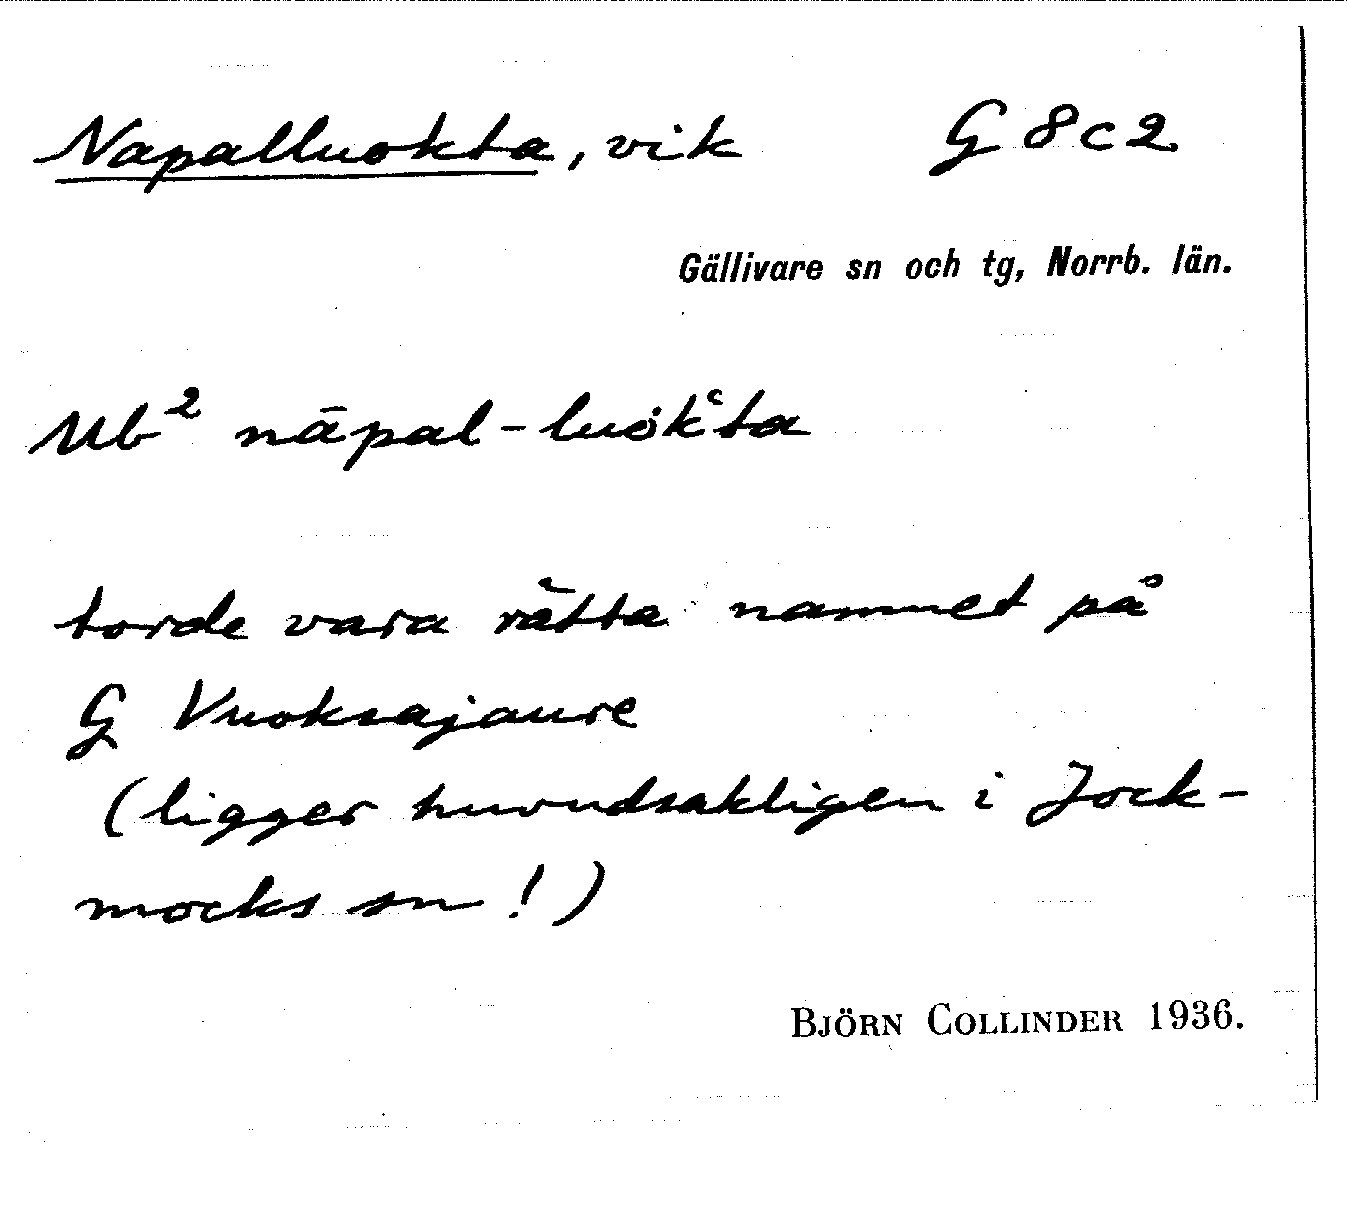 Napalluokta, vik G 8 c 2
Gällivare sn och tg, Norrb. län.
Ub² nāpal-luok̀ʿta
torde vara rätta namnet på
G Vuoksajaure
(ligger huvudsakligen i Jock-
mocks sn!)
BJÖRN COLLINDER 1936.